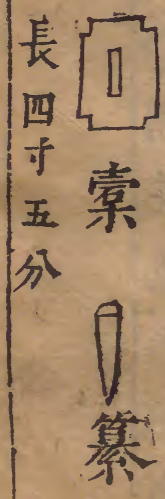 纂
長四寸五分